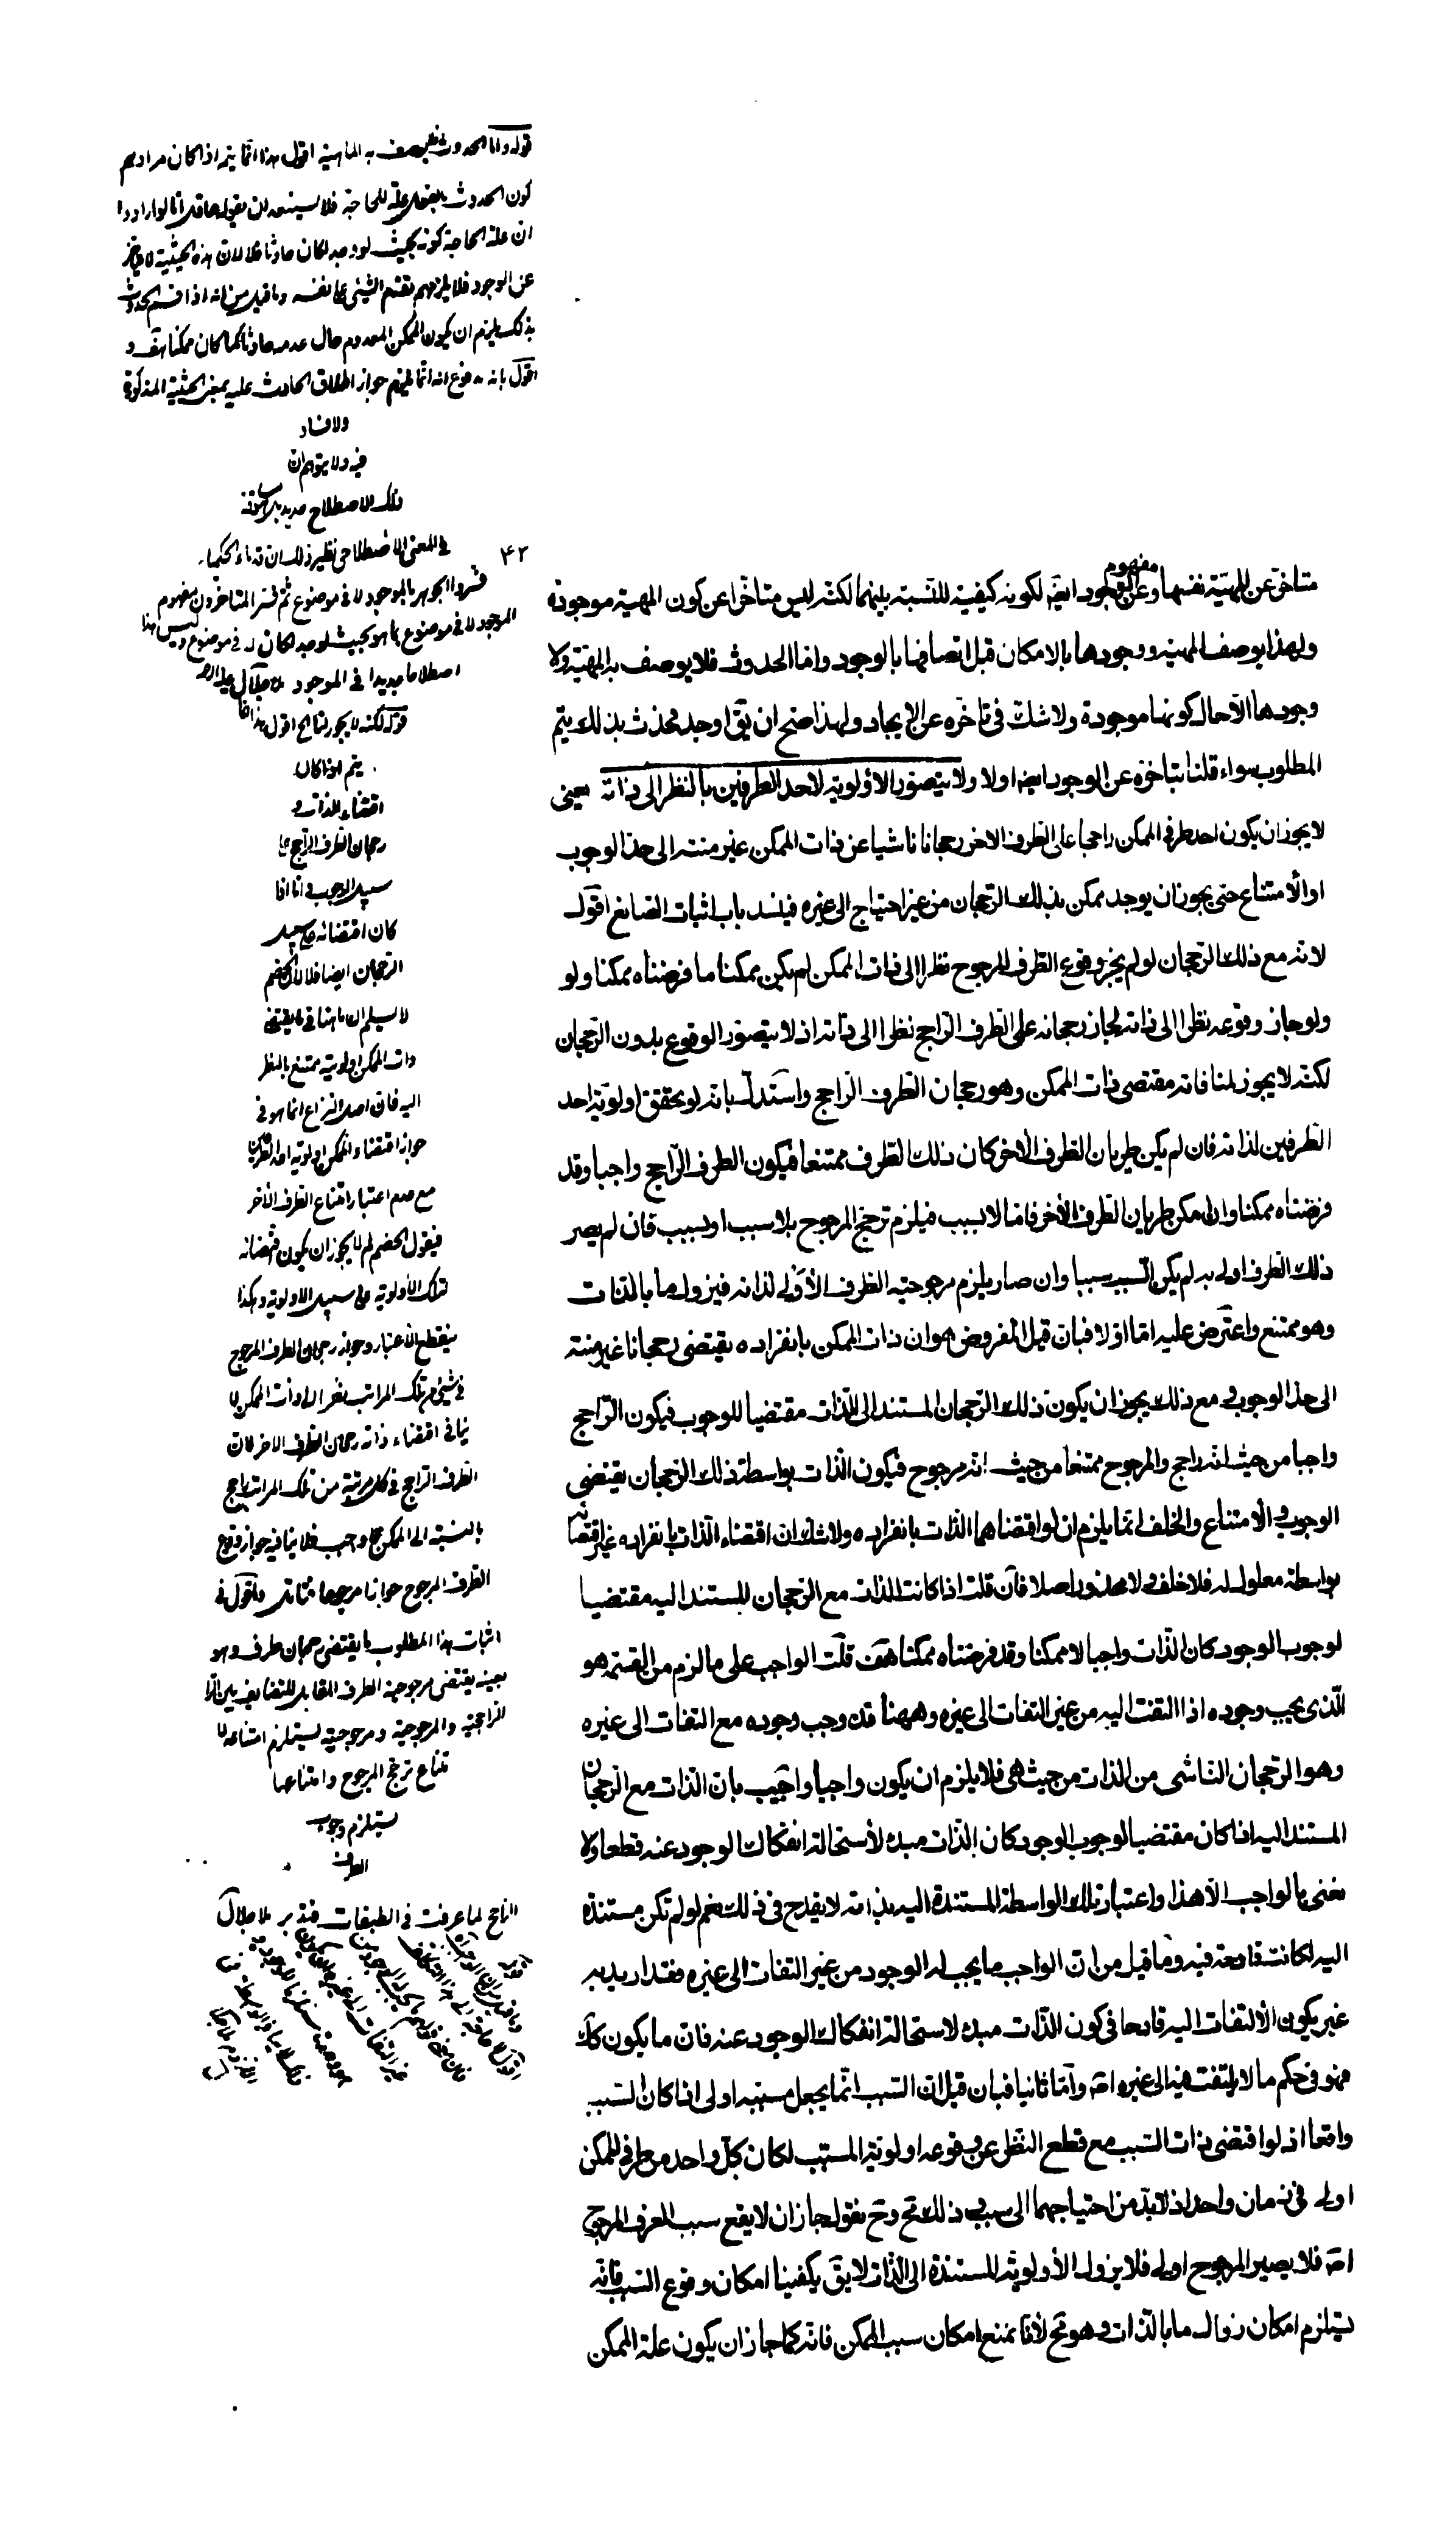 متأخرة عن المهيّة نفسها وعن مفهوم الوجود ايضا لكونه كيفية للنسبة بينهما لكنه ليس متأخرا عن كون المهية موجودة
ولهذا يوصف المهية ووجودها بالامكان قبل اتصافها بالوجود واما الحدوث فلا يوصف به المهيّة ولا
وجودها الا حال كونها موجودة ولا شك في تاخره عن الايجاد ولهذا صح ان يق اوجد فحدث بذلك يتم
المطلوب سواء قلنا بتاخره عن الوجود ايضا اولا ولا يتصور الاولوية لاحد الطرفين بالنظر الى ذاته يعنى
لا يجوز ان يكون احد طرفى الممكن راجحا على الطرف الاخر رجحانا ناشيا عن ذات الممكن غير منته الى حد الوجوب
او الامتناع حتى يجوز ان يوجد ممكن بذلك الرجحان من غير احتياج الى غيره فينسد باب اثبات الصانع اقول
لانه مع ذلك الرجحان لو لم يجز وقوع الطرف المرجوح نظرا الى ذات الممكن لم يكن ممكنا ما فرضناه ممكنا ولو
ولو جاز وقوعه نظرا الى ذاته لجاز رجحانه على الطرف الراجح نظرا الى ذاته اذ لا يتصور الوقوع بدون الرجحان
لكنه لا يجوز لمنافاته مقتضى ذات الممكن وهو رجحان الطرف الراجح واستدل بانه لو تحقق اولوية احد
الطرفين لذاته فان لم يكن طريان الطرف الاخر كان ذلك الطرف ممتنعا فيكون الطرف الراجح واجبا وقد
فرضناه ممكنا وان امكن طريان الطرف الأخر فاما لا بسبب فيلزم ترجح المرجوح بلا سبب او بسبب فان لم يصر
ذلك الطرف اولى به لم يكن السبب سببا وان صار يلزم مرجوحية الطرف الأولى لذاته فيزول ما بالذات
وهو ممتنع واعترض عليه اما اولا فبان قيل المفروض هو ان ذات الممكن بانفراده يقتضى رجحانا غير منته
الى حد الوجوب ومع ذلك يجوز ان يكون ذلك الرجحان المستند الى الذات مقتضيا للوجوب فيكون الراجح
واجبا من حيث انه راجح والمرجوح ممتنعا من حيث انه مرجوح فيكون الذات بواسطة ذلك الرجحان يقتضى
الوجوب والامتناع والخلف انما يلزم ان لو اقتضاهما الذات بانفراده ولا شك ان اقتضاء الذات بانفراده غير اقتضائه
بواسطة معلول له فلا خلف ولا محذور اصلا فان قلت اذا كانت الذات مع الرجحان المستند اليه مقتضيا
لوجوب الوجود كان الذات واجبا لا ممكنا وقد فرضناه ممكنا هف قلت الواجب على ما لزم من القسمة هو
الذى يجب وجوده اذا التفت اليه من غير التفات الى غيره وههنا قد وجب وجوده مع التفات الى غيره
وهو الرجحان الناشى من الذات من حيث هى فلا يلزم ان يكون واجبا واجيب بان الذات مع الرجحان
المستند اليه اذا كان مقتضيا لوجوب الوجود كان الذات مبدء لاستحالة انفكاك الوجود عنه قطعا ولا
نعنى بالواجب الا هذا واعتبار تلك الواسطة المستندة اليه بذاته لا يقدح فى ذلك نعم لو لم تكن مستندة
اليه لكانت قادحة فيه وما قيل من ان الواجب ما يجب له الوجود من غير التفات الى غيره فقد اريد به
غير يكون الالتفات اليه قادحا فى كون الذات مبدء لاستحالة انفكاك الوجود عنه فان ما يكون كك
فهو فى حكم ما لا يلتفت فيه الى غيره اصلا واما ثانيا فبان قيل ان السبب انما يجعل مسببه اولى اذا كان السبب
واقعا اذ لو اقتضى ذات السبب مع قطع النظر عن وقوعه اولوية المسبب لكان كل واحد من طرفى الممكن
اولى فى زمان واحد اذ لابد من احتياجهما الى سبب وذلك مح وح نقول جاز ان لا يقع سبب الطرف المرجوح
اصلا فلا يصير المرجوح اولى فلا يزول الأولوية المستندة الى الذات لا يق يكفينا امكان وقوع السبب فانه
يستلزم امكان زوال ما بالذات وهو مح لأنا نمنع امكان سبب الممكن فانه كما جاز ان يكون علة الممكن
قوله واما الحدوث فلا يوصف به الماهية اقول هذا انما يتم اذا كان مرادهم
كون الحدوث بالفعل علة للحاجة فلا يستبعد ان يقول انما ارادوا
ان علة الحاجة كونه بحيث لو وجد لكان حادثا فلا لان هذه الحيثية لا يتاخر
عن الوجود فلا يلزمهم تقدم الشيئ على نفسه وما قيل من انه اذا فسر الحدوث
بذلك يلزم ان يكون الممكن المعدوم حال عدمه حادثا كما كان ممكنا
اقول بانه مدفوع انه انما يلزم جواز اطلاق الحادث عليه بمعنى الحيثية المذكورة
ولا فساد
فيه ولا يتوهم ان
ذلك الاصطلاح جديد
فى المعنى الاصطلاحى نظير ذلك ان قدماء الحكماء
٤٢
فسروا الجوهر بالموجود لا فى موضوع ثم فسر المتاخرون مفهوم
الموجود لا فى موضوع بما هو بحيث لو وجد لكان لا فى موضوع وليس هذا
اصطلاحا جديدا فى الموجود ملا جلال
قوله لكنه لا يجوز لمنا الخ اقول هذا انما
يتم لو كان
اقتضاء الذات
رجحان الطرف الراجح على
سبيل الوجوب اما اذا
كان اقتضائه على سبيل
الرجحان ايضا فلا لان الخصم
لا يسلم ان ما ينافى ما يقتضى
ذات الممكن اولويته ممتنع بالنظر
اليه فان اصل النزاع انما هو فى
جواز اقتضاء الممكن اولوية احد الطرفين
مع عدم اعتبار امتناع الطرف الأخر
فيقول الخصم لم لا يجوز ان يكون اقتضائه
لتلك الأولوية على سبيل الاولوية وهكذا
ينقطع الاعتبار وجواز رجحان الطرف المرجوح
فى شيئ من تلك المراتب نظرا الى ذات الممكن لا
ينافى اقتضاء ذاته رجحان الطرف الاخر فان
الطرف الراجح فى كل مرتبة من تلك المراتب راجح
بالنسبة الى الممكن لا واجب فلا ينافيه جواز وقوع
الطرف المرجوح جوازا مرجوحا فتامل ونقول فى
اثبات هذا المطلوب ما يقتضى رجحان طرف وهو
بعينه يقتضى مرجوحية الطرف المقابل للتضايف بين
الراجحية والمرجوحية ومرجوحيته يستلزم امتناعه لا
متناع ترجح المرجوح وامتناعها
يستلزم وجوب
الطرف
الراجح لما عرفت فى الطبقات فتدبر ملا جلال